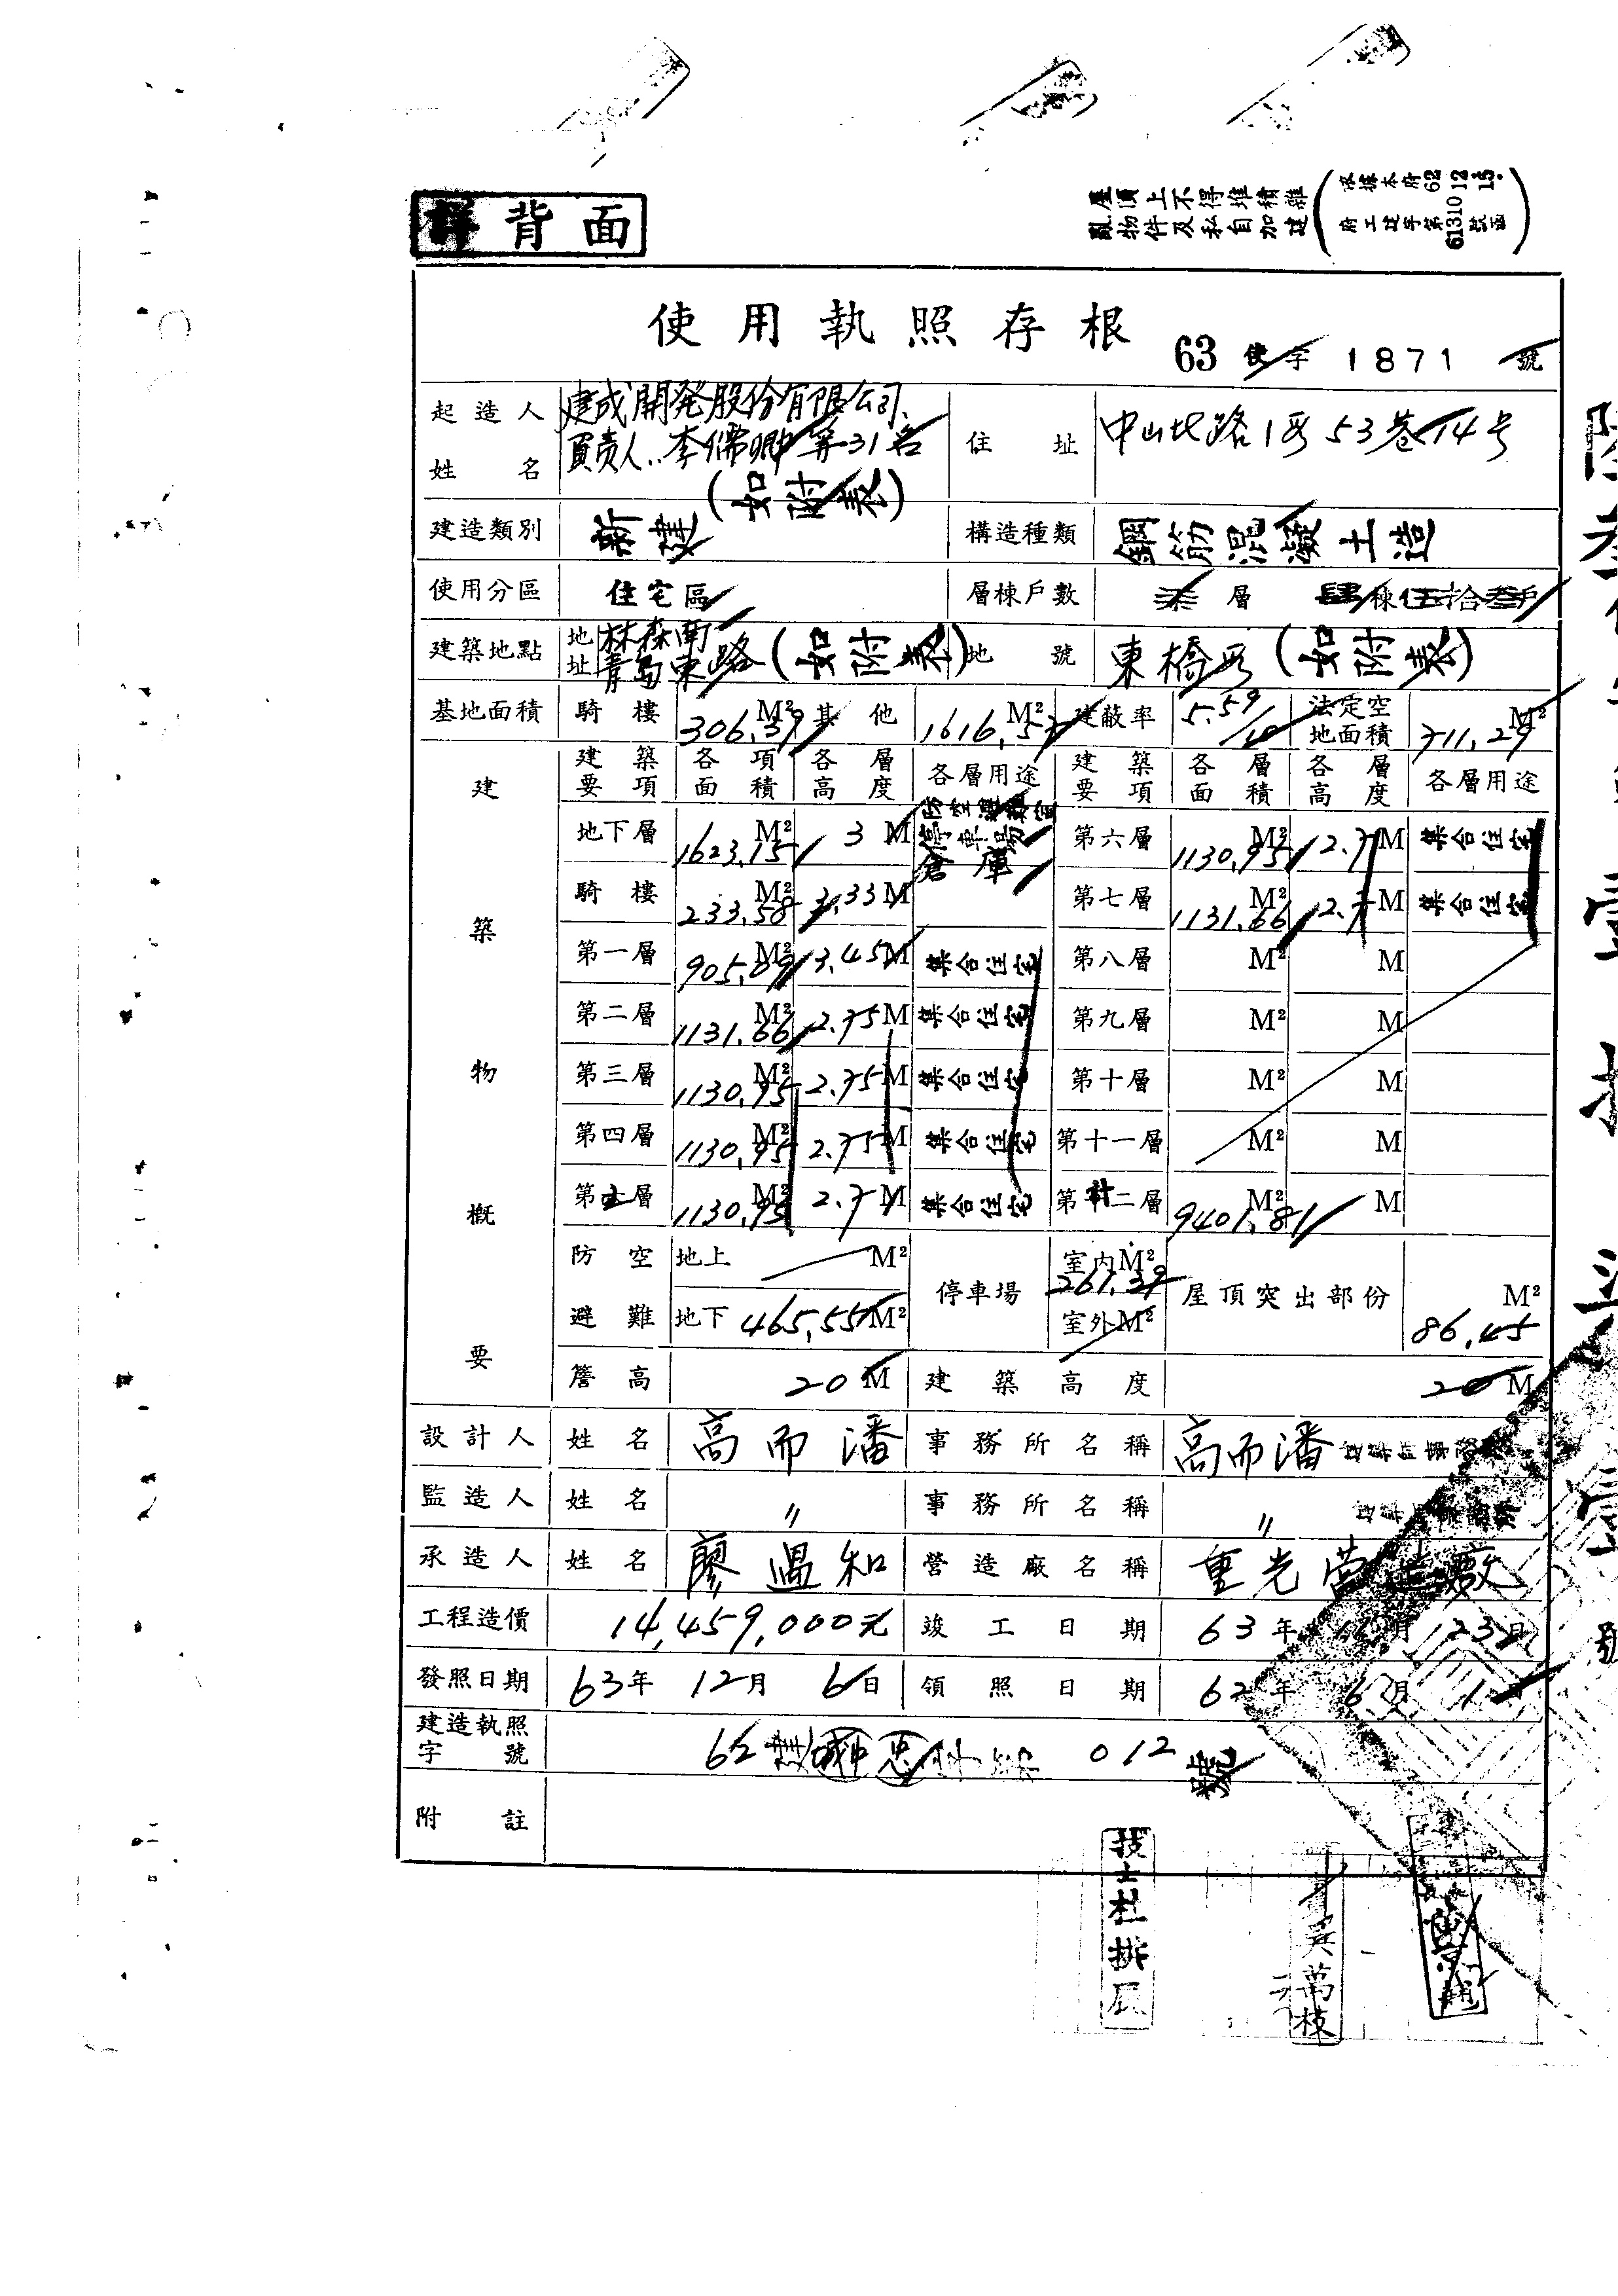 詳背面
屋頂上不得堆積雜
亂物件及私自加建
(依據本府62 12 15.
府工建字第61310號函)
使用執照存根
63 使字 1871 號
起造人姓名 建成開発股份有限公司、
負責人..李儒卿等31名
(如附表)
住址 中山北路1段53巷14号
建造類別 新建
構造種類 鋼筋混凝土造
使用分區 住宅區
層棟戶數 柒層 肆棟伍拾叁戶
建築地點 地址 林森南
青島東路(如附表)
地號 東橋段(如附表)
基地面積 騎樓 306.39 M² 其他 1616.52 M² 建蔽率 5.59/10 法定空地面積 711.29 M²
建築物概要
建築要項 各項面積 各層高度 各層用途 建築要項 各層面積 各層高度 各層用途
地下層 1623.15 M² 3 M 防空避難室
停車場
倉庫
第六層 1130.95 M² 2.7 M 集合住宅
騎樓 233.58 M² 3.33 M 第七層 1131.66 M² 2.7 M 集合住宅
第一層 905.09 M² 3.45 M 集合住宅 第八層 M² M
第二層 1131.66 M² 2.75 M 集合住宅 第九層 M² M
第三層 1130.95 M² 2.75 M 集合住宅 第十層 M² M
第四層 1130.95 M² 2.75 M 集合住宅 第十一層 M² M
第五層 1130.95 M² 2.7 M 集合住宅 第十二層 計 9401.81 M² M
防空避難 地上 M² 停車場 室內 M² 261.39 屋頂突出部份 86.45 M²
地下 465.55 M² 室外 M²
簷高 20 M 建築高度 20 M
設計人 姓名 高而潘 事務所名稱 高而潘建築師事務所
監造人 姓名 〃 事務所名稱 〃
承造人 姓名 廖溫和 營造廠名稱 重光營造廠
工程造價 14,459,000元 竣工日期 63年 月 23日
發照日期 63年 12月 6日 領照日期 62年 6月 1日
建造執照字號 62建(城中)(忠)字第 012 號
附註
技士杜拱辰
吳萬枝